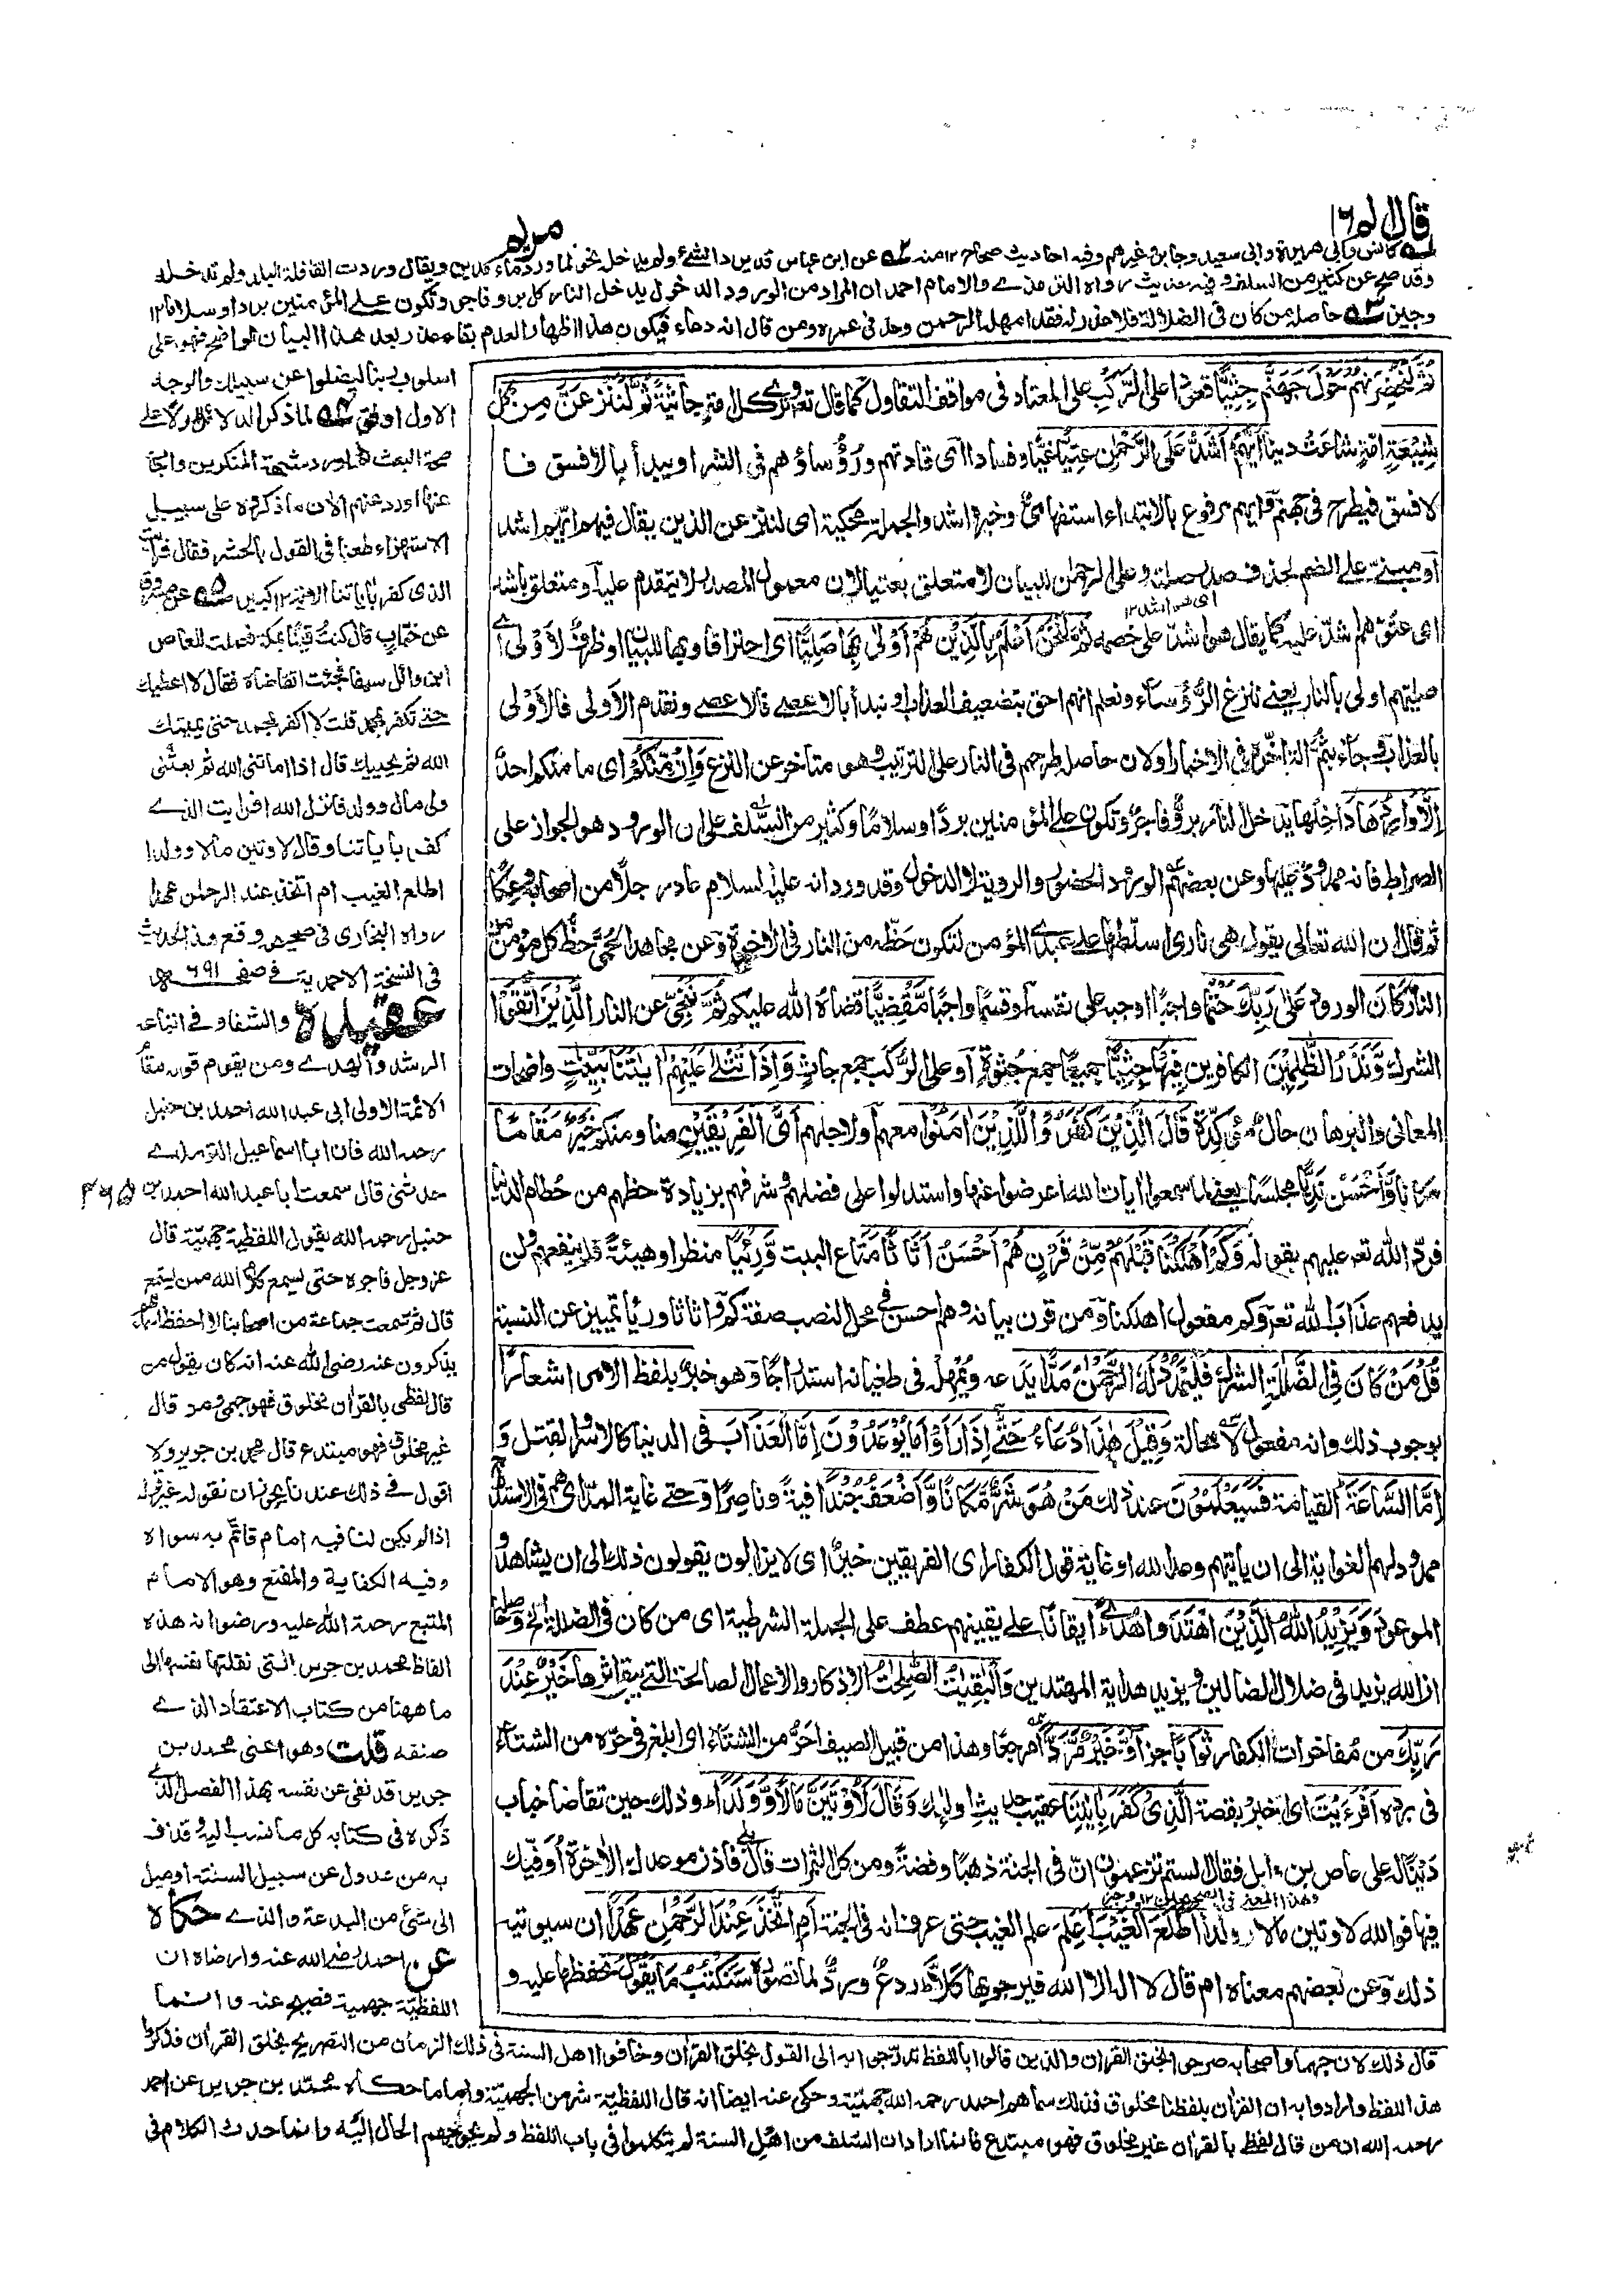 قال الم ١٦
مريم
كانس وابي هريرة وابي سعيد وجابر وغيرهم وفيه احاديث صحاح ١٢ منه عن ابن عباس قد يرد الشئ ولم يدخل نحو لما ورد ماء مدين ويقال وردت القافلة البلد ولم تدخله
وقد صح عن كثير من السلف وفيه حديث رواه الترمذي والامام احمد ان المراد من الورود الدخول يدخل النار كل بر وفاجر وتكون على المؤمنين بردا وسلاما ١٢
وجيز حاصله من كان في الضلالة فلا عذر له فقد امهله الرحمن ومد في عمره ومن قال انه دعاء فيكون هذا اظهار العدم بقاء عذر بعد هذا البيان الواضح فهو على
ثم لنحضرنهم حول جهنم جثيا قعودا على الركب على المعتاد في مواقف التقاول كما قال تعالى وترى كل امة جاثية ثم لننزعن من كل
شيعة امة شاعت دينا ايهم اشد على الرحمن عتيا وفسادا اى قادتهم ورؤساؤهم في الشر او يبدأ بالافسق فا
لافسق فيطرح في جهنم وايهم مرفوع بالابتداء استفهامي وخبره اشد والجملة محكية اى لننزعن الذين يقال فيهم ايهم اشد
او مبني على الضم لحذف صدر صلته وعلى الرحمن للبيان لا متعلق بعتيا لان معمول المصدر لا يتقدم عليه او متعلق باشد
اى هو اشد ١٢
اى عتوهم اشد عليه كما يقال هو اشد على خصمه ثم لنحن اعلم بالذين هم اولى بها صليا اى احتراقا وبها للبيان او ظرف لاولى اى
صليتهم اولى بالنار يعني ننزع الرؤساء ونعلم انهم احق بتضعيف العذاب او نبدأ بالاعصى فالاعصى ونقدم الاولى فالاولى
بالعذاب وجاء بثم التأخر في الاخبار او لان حاصل طرحهم في النار على الترتيب وهو متاخر عن النزع وان منكم اى ما منكم احد
الا واردها داخلها يدخل النار بر وفاجر وتكون على المؤمنين بردا وسلاما وكثير من السلف على ان الورود هو الجواز على
الصراط فانه ممدود عليها وعن بعضهم الورود الحضور والروية لا الدخول وقد ورد انه عليه السلام عاد رجلا من اصحابه وعكا
ثم قال ان الله تعالى يقول هى نارى اسلطها على عبدى المؤمن لتكون حظه من النار في الاخرة وعن مجاهد الحمى حظ كل مؤمن من
النار كان الورود على ربك حتما واجبا اوجبه على نفسه او قسما واجبا مقضيا قضاه الله عليكم ثم ننجي عن النار الذين اتقوا
الشرك ونذر الظلمين الكافرين فيها جثيا جميعا جمع جثوة او على الركب جمع جاث واذا تتلى عليهم ايتنا بينت واضحات
المعاني والبرهان حال مؤكدة قال الذين كفروا للذين امنوا معهم ولاجلهم اى الفريقين منا ومنكم خير مقاما
مكانا واحسن نديا مجلسا يعني لما سمعوا ايات الله اعرضوا عنها واستدلوا على فضلهم وشرفهم بزيادة حظهم من حطام الدنيا
فرد الله تعالى عليهم بقوله وكم اهلكنا قبلهم من قرن هم احسن اثاثا متاع البيت ورئيا منظرا وهيئة فلم ينفعهم ولن
يدفعهم عذاب الله تعالى وكم مفعول اهلكنا ومن قرن بيانه وهم احسن في محل النصب صفة كم واثاثا ورئيا تمييز عن النسبة
قل من كان في الضللة الشرك فليمدد له الرحمن مدا يدعه ويمهله في طغيانه استدراجا وهو خبر بلفظ الامر اشعارا
بوجوب ذلك وانه مفعول لا محالة وقيل هذا دعاء حتى اذا راوا ما يوعدون اما العذاب في الدنيا كالاسر والقتل و
اما الساعة القيامة فسيعلمون عند ذلك من هو شر مكانا واضعف جندا فية وناصرا وحتى غاية المد اى هم في الاستدراج
ممدود لهم الغواية الى ان ياتيهم وعد الله او غاية قول الكفار اى الفريقين خير اى لا يزالون يقولون ذلك الى ان يشاهدوا
الموعود ويزيد الله الذين اهتدوا هدى ايقانا على يقينهم عطف على الجملة الشرطية اى من كان في الضلالة الخ وحاصله
ان الله يزيد في ضلال الضالين ويزيد هداية المهتدين والبقيت الصلحت الاذكار والاعمال الصالحة التي يبقى اثرها خير عند
ربك من مفاخرات الكفار ثوابا جزاء وخير مردا مرجعا وهذا من قبيل الصيف احر من الشتاء اى ابلغ في حره من الشتاء
في برده افرءيت اى اخبر بقصة الذى كفر بايتنا عقيب حديث اولئك وقال لاوتين مالا وولدا وذلك حين تقاضا خباب
دينا له على عاص بن وايل فقال الستم تزعمون ان في الجنة ذهبا وفضة ومن كل الثمرات قال فاذن موعدك الاخرة اوفيك
وهذا المعنى في الصحيحين ١٢ وجيز
فيها فوالله لاوتين مالا وولدا اطلع الغيب اعلم علم الغيب حتى عرف انه في الجنة ام اتخذ عند الرحمن عهدا ان سيوتيه
ذلك وعن بعضهم معناه ام قال لا اله الا الله فيرجو بها كلا ردع ورد لما تصوره سنكتب ما يقول نحفظها عليه و
اسلوب ربنا ليضلوا عن سبيلك والوجه
الاول اوفق لما ذكر الدلائل اولا على
صحة البعث ثم اورد شبهة المنكرين واجاب
عنها اورد عنهم الان ما ذكروه على سبيل
الاستهزاء طعنا في القول بالحشر فقال افرايت
الذى كفر باياتنا الاية ١٢ كبير عن مسروق
عن خباب قال كنت قينا بمكة فعملت للعاص
ابن وائل سيفا فجئت اتقاضاه فقال لا اعطيك
حتى تكفر بمحمد قلت لا اكفر بمحمد حتى يميتك
الله ثم يحييك قال اذا اماتني الله ثم بعثني
ولى مال وولد فانزل الله افرايت الذى
كفر باياتنا وقال لاوتين مالا وولدا
اطلع الغيب ام اتخذ عند الرحمن عهدا
رواه البخارى في صحيحه وقع هذا الحديث
في النسخة الاحمدية في صفحه ٦٩١
عقيدة والشفاء في اتباعه
الرشد والهدى ومن يقوم قوله مقام
الائمة الاولى ابى عبد الله احمد بن حنبل
رحمه الله فان ابا اسماعيل الترمذى
حدثنى قال سمعت ابا عبد الله احمد بن
حنبل رحمه الله يقول اللفظية جهمية قال
عز وجل فاجره حتى يسمع كلام الله ممن يسمع
قال ثم سمعت جماعة من اصحابنا لا احفظ اسماءهم
يذكرون عنه رضى الله عنه انه كان يقول من
قال لفظى بالقران مخلوق فهو جهمى ومن قال
غير مخلوق فهو مبتدع قال محمد بن جرير ولا
اقول في ذلك عندنا يجوز ان نقوله غير قوله
اذا لم يكن لنا فيه امام قائم به سواه
وفيه الكفاية والمقنع وهو الامام
المتبع رحمة الله عليه ورضوانه هذه
الفاظ محمد بن جرير التى نقلتها نفسها الى
ما ههنا من كتاب الاعتقاد الذى
صنفه قلت وهو اعنى محمد بن
جرير قد نفى عن نفسه بهذا الفصل الذى
ذكره في كتابه كل ما نسب اليه وقذف
به من عدول عن سبيل السنة او ميل
الى شئ من البدعة والذى حكاه
عن احمد رضى الله عنه وارضاه ان
اللفظية جهمية فصحيح عنه وانما
قال ذلك لان جهما واصحابه صرحوا بخلق القران والذين قالوا باللفظ تدرجوا به الى القول بخلق القران وخافوا اهل السنة في ذلك الزمان من التصريح بخلق القران فذكروا
هذا اللفظ وارادوا به ان القران بلفظنا مخلوق فذلك سماهم احمد رحمه الله جهمية وحكى عنه ايضا انه قال اللفظية شر من الجهمية واما ما حكاه محمد بن جرير عن احمد
رحمه الله ان من قال لفظى بالقران غير مخلوق فهو مبتدع فانما اراد ان السلف من اهل السنة لم يتكلموا في باب اللفظ ولم يحوجهم الحال اليه وانما حدث الكلام في